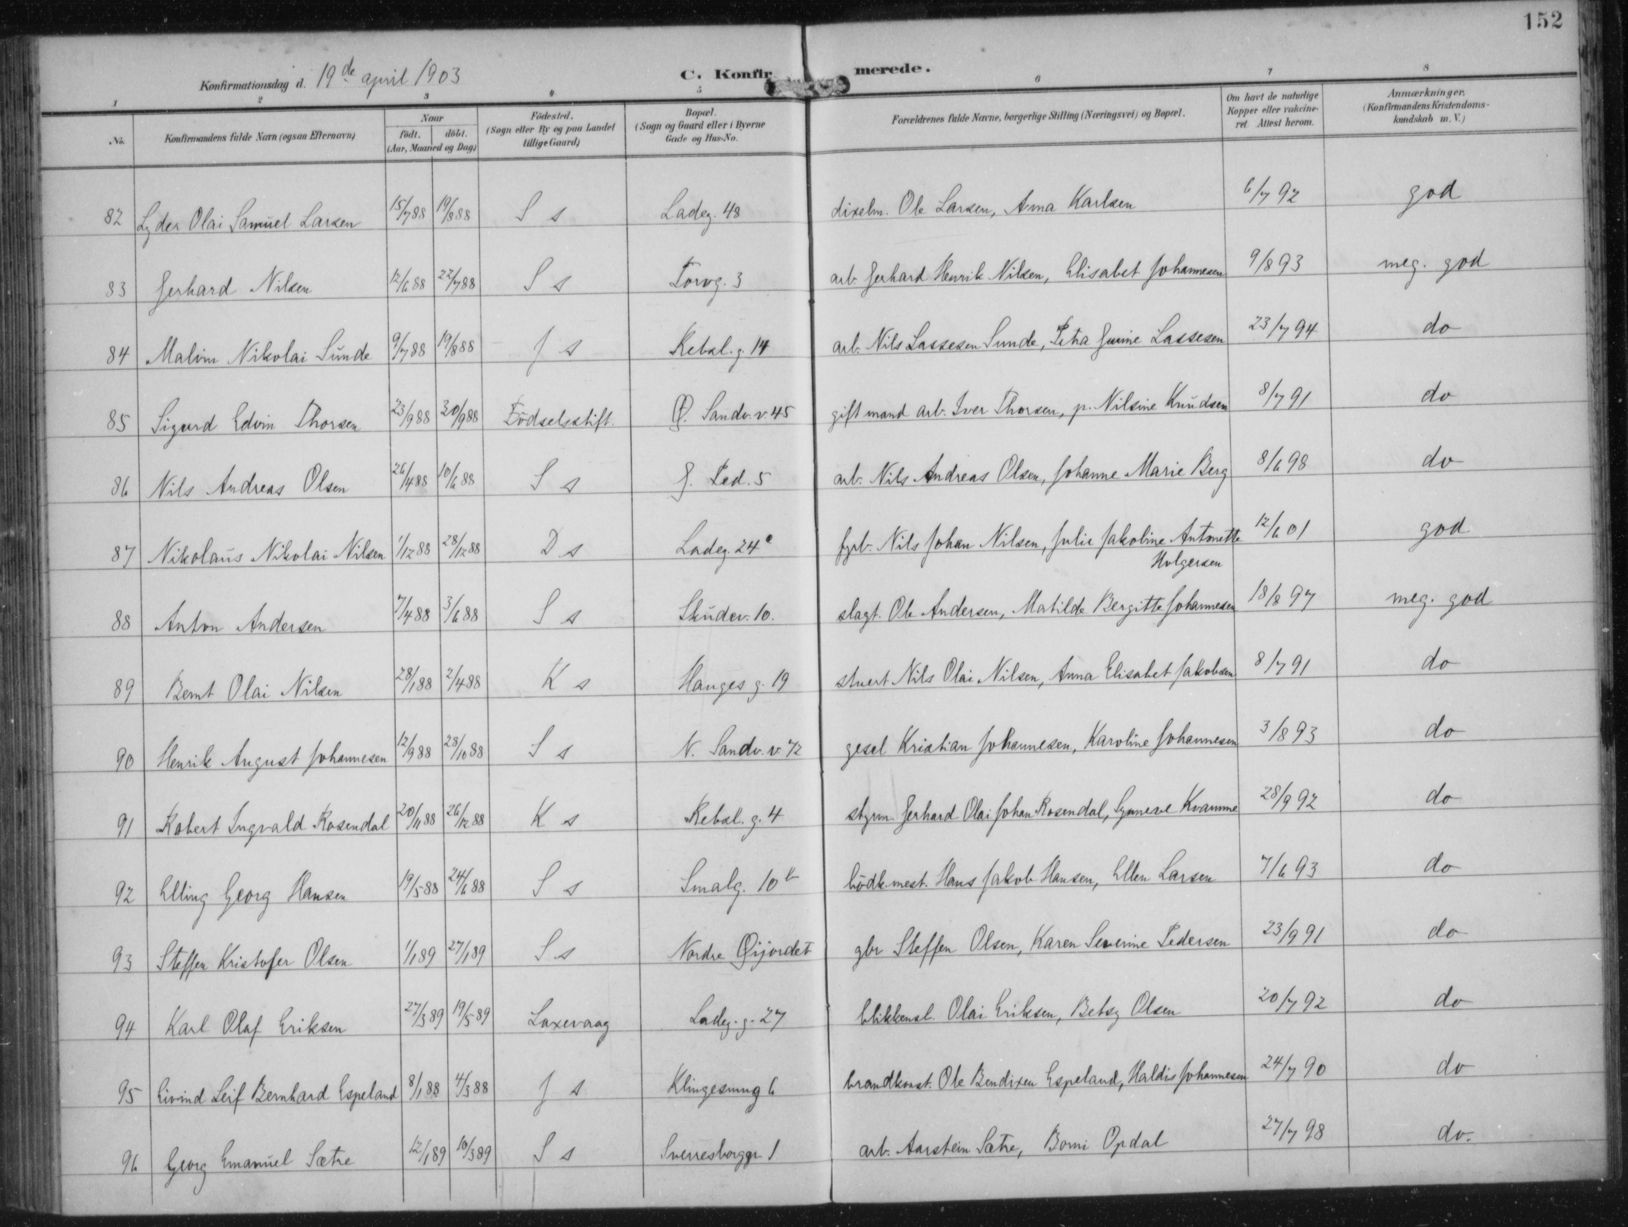 152
Konfirmationsdag d. 19de april 1903
C. Konfirmerede.
1 2 3 4 5 6 7 8
No. Konfirmandens fulde Navn (ogsaa Efternavn) Naar født. døbt. (Aar, Maaned og Dag) Fødested. (Sogn eller By og paa Landet tillige Gaard) Bopæl. (Sogn og Gaard eller i Byerne Gade og Hus-No. Forældrenes fulde Navne, borgerlige Stilling (Næringsvei) og Bopæl. Om havt de naturlige Kopper eller vakcineret. Attest herom. Anmærkninger. (Konfirmandens Kristendomskundskab m. V.)
82 Lyder Olai Samuel Larsen 15/7 88 19/8 88 S s Ladeg. 48 dixelm. Ole Larsen, Anna Karlsen 6/7 92 god
83 Gerhard Nilsen 12/6 88 22/7 88 S s Torvg. 3 arb. Gerhard Henrik Nilsen, Elisabet Johannesen 9/8 93 meg. god
84 Malvin Nikolai Sunde 9/7 88 19/8 88 J s Rebsl.g. 14 arb. Nils Lassesen Sunde, Petra Gurine Lassesen 23/7 94 do
85 Sigurd Edvin Thorsen 23/9 88 30/9 88 Födselsstift. Ø. Sandv.v. 45 gift mand arb. Iver Thorsen, p. Nilsine Knudsen 8/7 91 do
86 Nils Andreas Olsen 26/4 88 10/6 88 S s J. Ped. 5 arb. Nils Andreas Olsen, Johanne Marie Berg 8/6 98 do
87 Nikolaus Nikolai Nilsen 1/12 88 28/12 88 D s Ladeg. 24 c fyrb. Nils Johan Nilsen, Julie Jakobine Antonette Holgersen 12/6 01 god
88 Anton Andersen 7/4 88 3/6 88 S s Skudev. 10. slagt. Ole Andersen, Matilde Bergitte Johannesen 18/8 97 meg. god
89 Bernt Olai Nilsen 28/1 88 2/4 88 K s Hauges g. 19 stuert Nils Olai Nilsen, Anna Elisabet Jakobsen 8/7 91 do
90 Henrik August Johannesen 12/9 88 28/10 88 S s N. Sandv.v. 72 gesel Kristian Johannesen, Karoline Johannesen 3/8 93 do
91 Robert Ingvald Rosendal 20/11 88 26/12 88 K s Rebsl.g. 4 styrm. Gerhard Olai Johan Rosendal, Synneve Kvamme 28/9 92 do
92 Elling Georg Hansen 19/5 88 24/6 88 S s Smalg. 10 b bödk.mest. Hans Jakob Hansen, Ellen Larsen 7/6 93 do
93 Steffen Kristofer Olsen 1/1 89 27/1 89 S s Nordre Øijordet gbr Steffen Olsen, Karen Severine Pedersen 23/9 91 do
94 Karl Olaf Eriksen 27/3 89 19/5 89 Laxevaag Ladeg.g. 27 blikkensl. Olai Eriksen, Betsy Olsen 20/7 92 do
95 Eivind Leif Bernhard Espeland 8/1 88 4/3 88 J s Klingesmug 6 brandkonst. Ole Bendixen Espeland, Haldis Johannesen 24/7 90 do
96 Georg Emanuel Sætre 12/1 89 10/3 89 S s Sverresborggr. 1 arb. Aarstein Sætre, Borni Opdal 27/7 98 do.